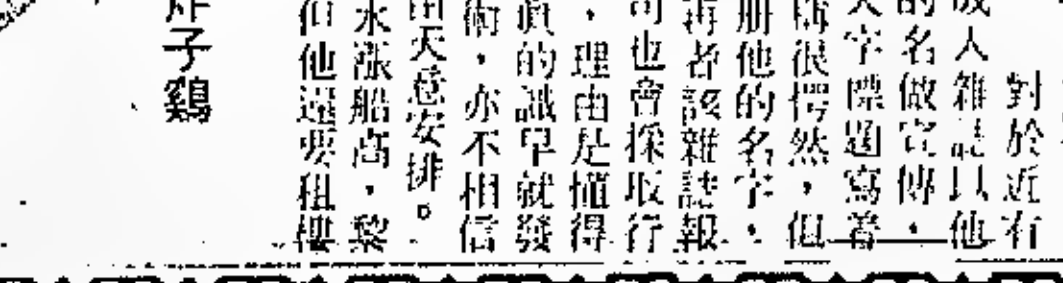 對於近有
成人雜誌以他
的名做宣傳，
大字標題寫着
稱很愕然，但
册他的名字，
再者該雜誌報
司也會採取行
，理由是懂得
真的識早就發
術，亦不相信
由天意安排。
水漲船高，黎
但他還要租樓
炸子鷄